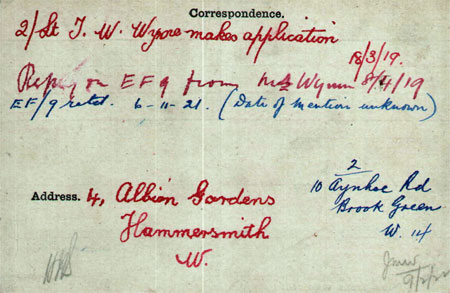 Correspondence.
2/Lt T. W. Wynne makes application
18/3/19.
Reply on EF9 from Mrs Wynn 8/4/19
EF/9 retd. 6-11-21. (Date of Mention unknown)
2
Address. 4, Albion Gardens
10 Aynhoe Rd
Hammersmith
Brook Green
W.
W. 14
9/2/22